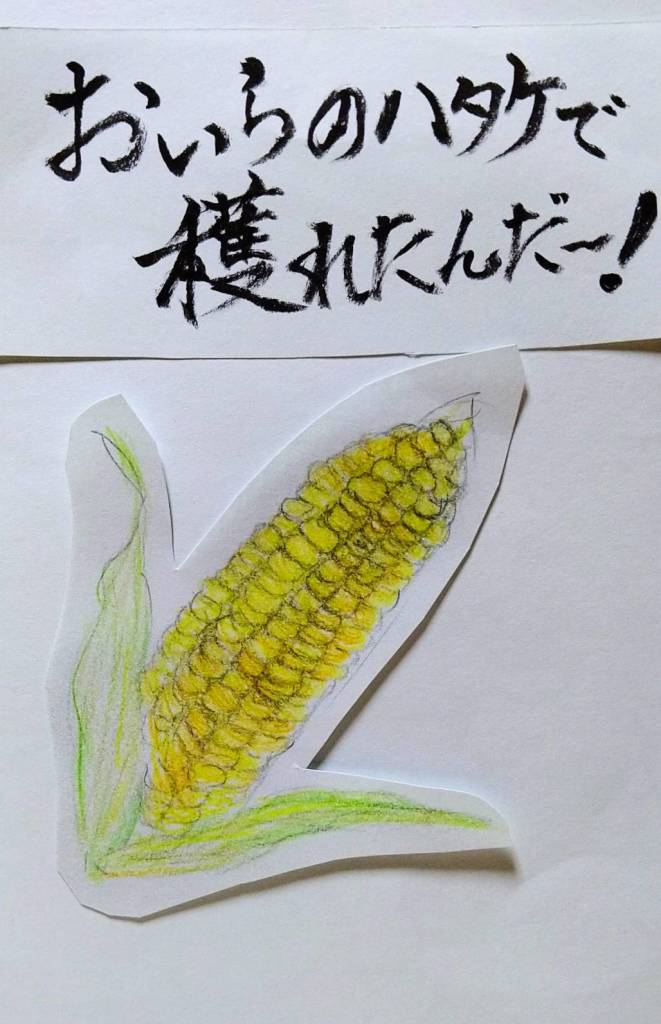 おいらのハタケで
穫れたんだ〜!